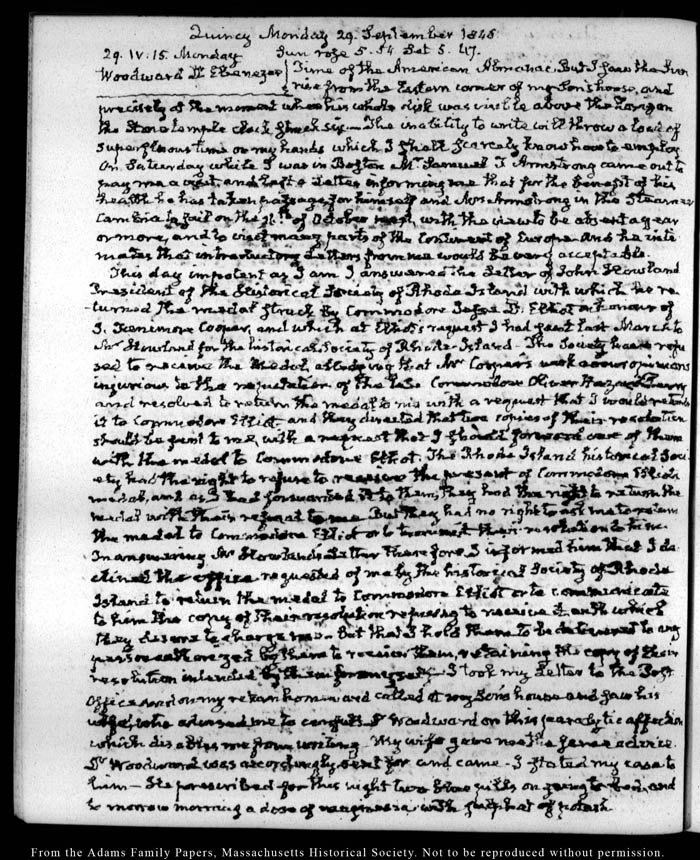 Quincy Monday 29. September 1845
29. IV:15. Monday Sun rose 5.54 Set 5.47.
Woodward Dr Ebenezer Time of the American Almanac, But I saw the Sun
rise from the Eastern corner of my Son's house, and
precisely at the moment when his whole disk was visible above the horizon
the Stone temple clock struck six — The inability to write will throw a load of
superfluous time on my hands which I shall scarcely know how to employ
On Saturday while I was in Boston Mr Samuel T Armstrong came out to
pay me a visit, and left a Letter informing me that for the benefit of his
health he has taken passage for himself and Mrs Armstrong in the Steamer
Cambria to sail on the of October next, with the view to be absent a year
or more, and to visit many parts of the Continent of Europe and he inti-
mates that introductory Letters from me would be very acceptable.
This day impotent as I am I answered the Letter of John Howland
President of the Historical Society of Rhode Island with which he re-
turned the medal struck by Commodore Jesse D. Elliot in honour of
J. Fenimore Cooper, and which at Elliot's request I had sent last March to
Mr Howland for the historical Society of Rhode-Island. The Society have refu-
sed to receive the Medal, alledging that Mr Cooper's opinions
injurious to the reputation of the late Commodore Oliver Hazard Perry
and resolved to return the medal to me with a request that I would return
it to Commodore Elliot, and they directed that two copies of their resolution
should be sent to me, with a request that I should forward one of them
with the medal to Commodore Elliot. The Rhode Island historical Soci-
ety had the right to refuse to receive the present of Commodore Elliot's
medal, and as I had forwarded it to them, they had the right to return the
medal with their refusal to me. But they had no right to ask me to return
the medal to Commodore Elliot or to transmit their resolution to him.
In answering Mr Howland's Letter therefore I informed him that I de-
clined the office requested of me by the historical Society of Rhode
Island to return the medal to Commodore Elliot or to communicate
to him the copy of their resolution refusing to receive it with which
they desire to charge me. But that I hold them to be delivered to any
person authorized by them to receive them, retaining the copy of their
resolution intended by them for myself. I took my Letter to the Post
Office and on my return homeward called at my Son's house and saw his
wife, who advised me to consult Dr Woodward on this paralytic affection
which disables me from writing. My wife gave me the same advice.
Dr Woodward was accordingly sent for and came. I stated my case to
him — He prescribed for this night two blue pills on going to bed, and
to morrow morning a dose of magnesia with sulphat of potash
From the Adams Family Papers, Massachusetts Historical Society. Not to be reproduced without permission.